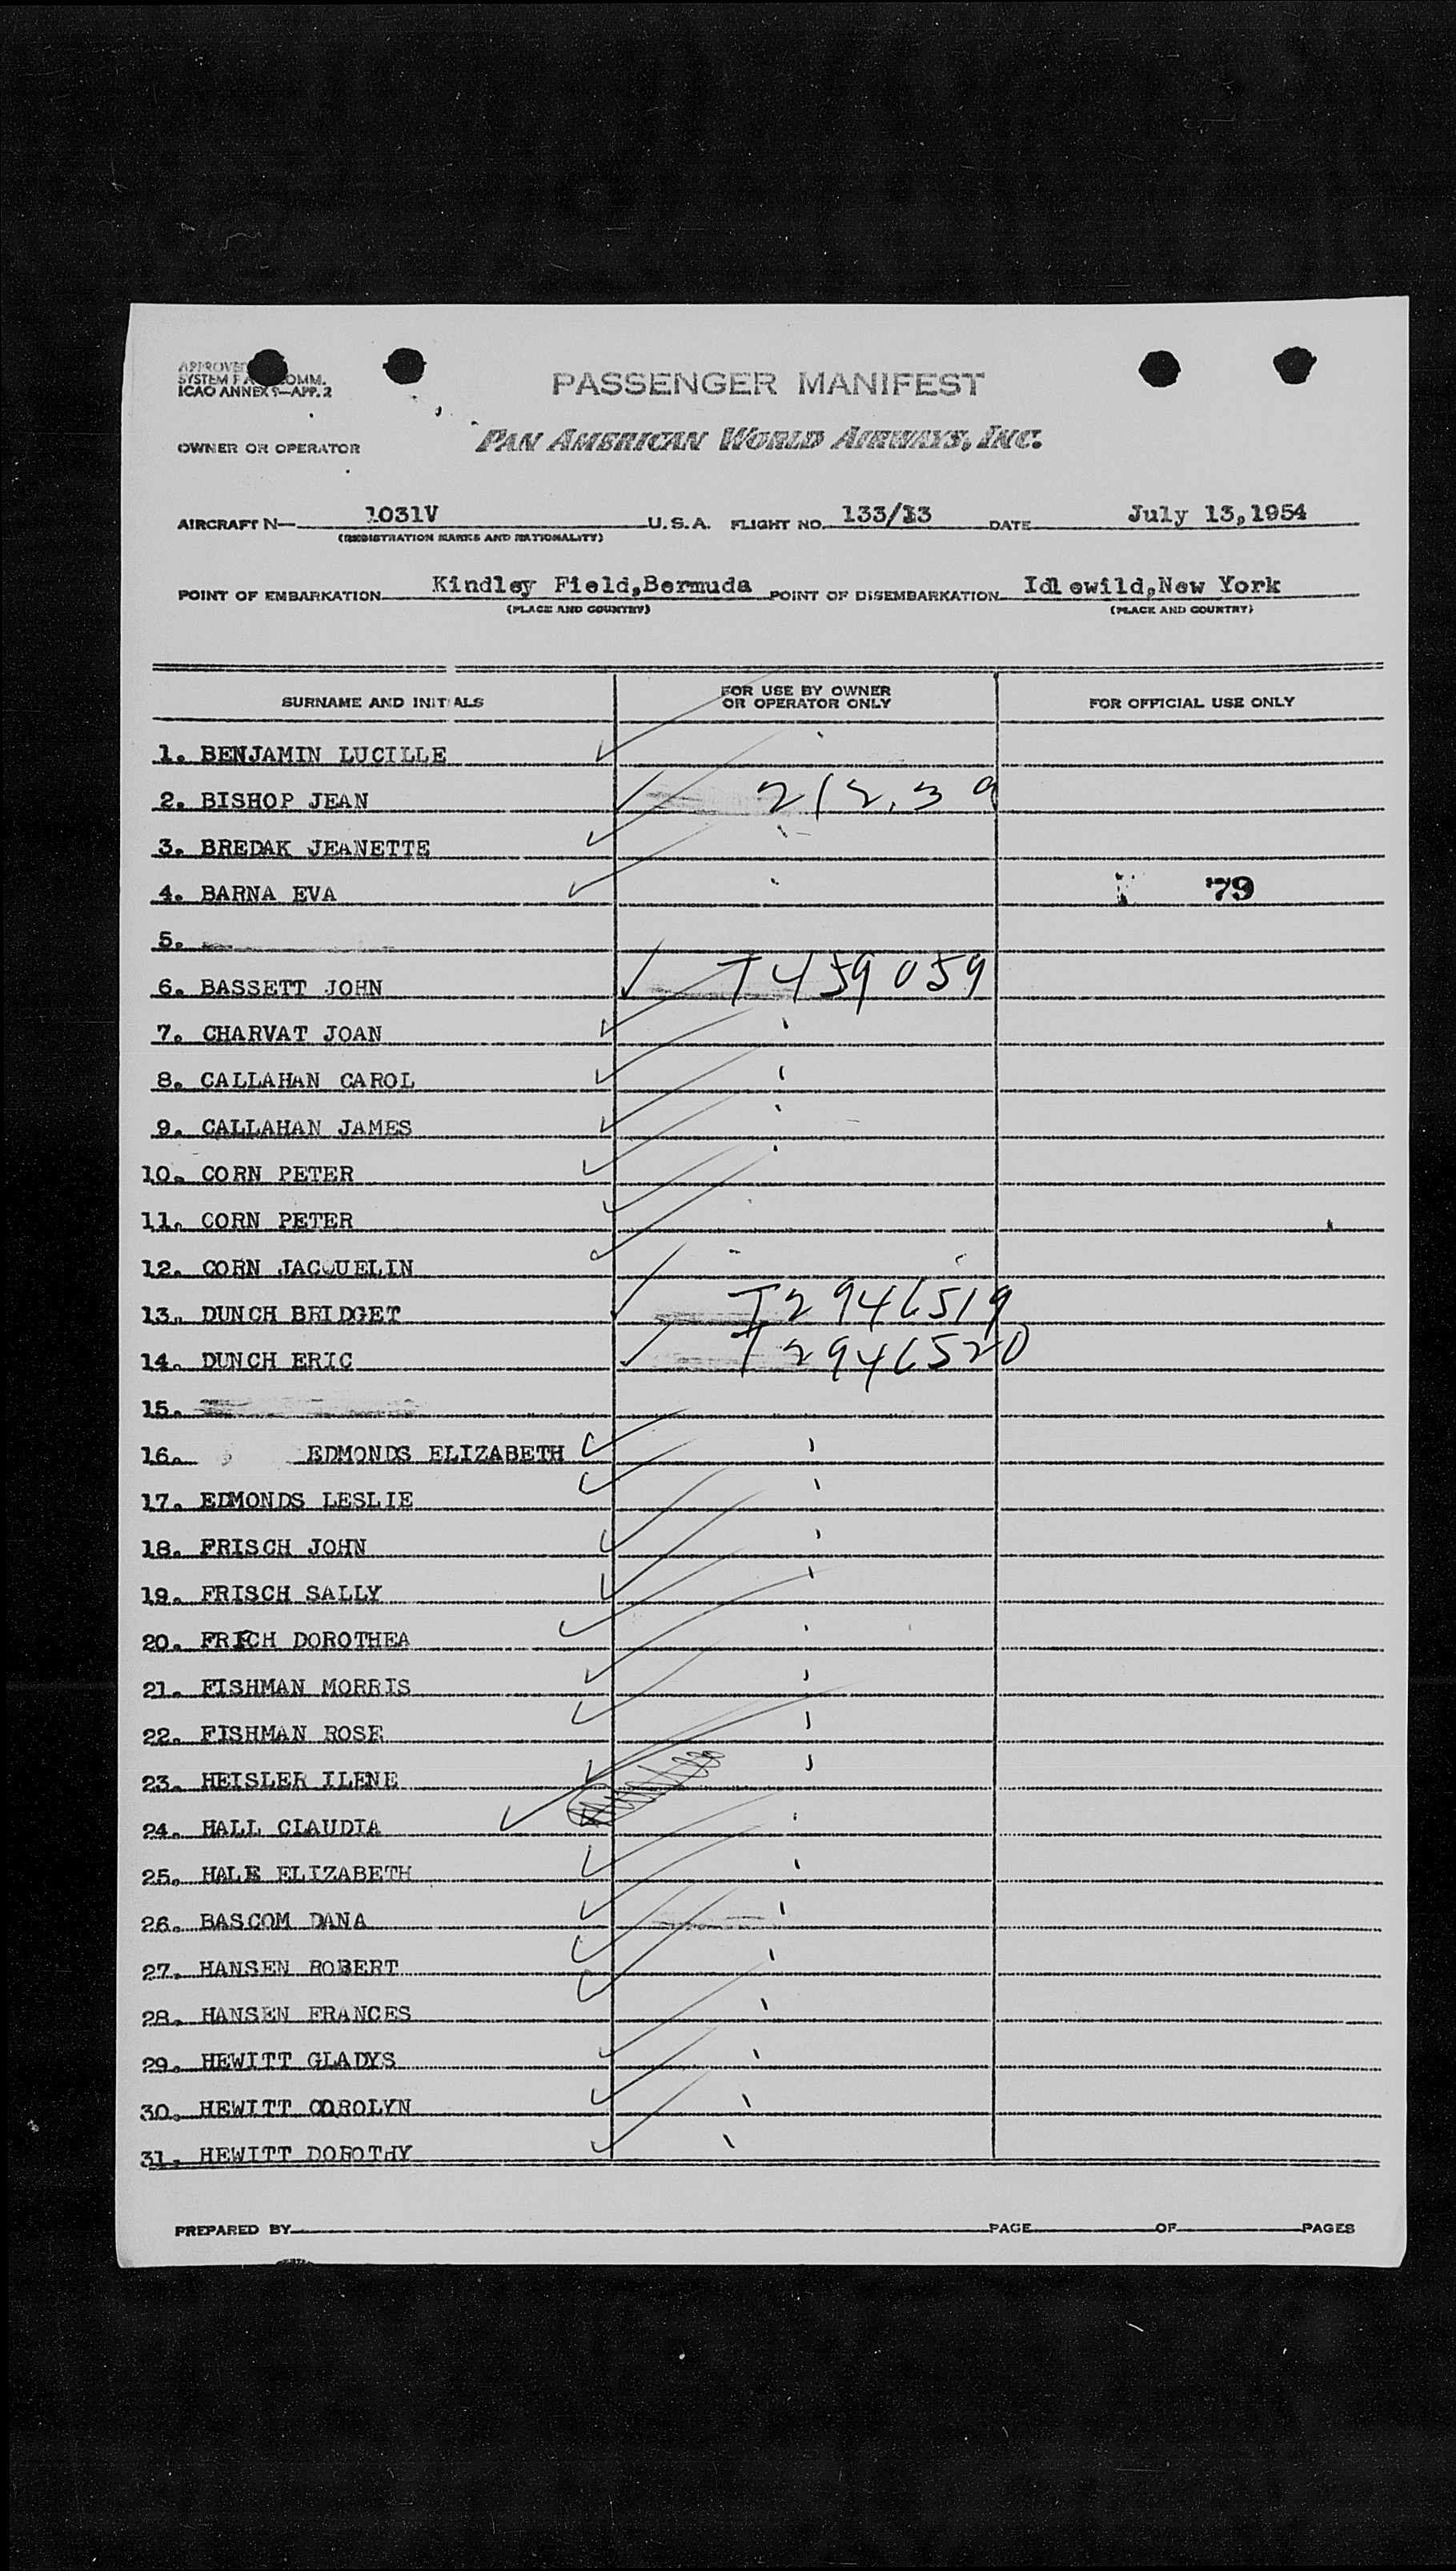 APPROVED
SYSTEM FA COMM.
ICAO ANNEX 9—APP. 2
PASSENGER MANIFEST
OWNER OR OPERATOR PAN AMERICAN WORLD AIRWAYS, INC.
AIRCRAFT N— 1031V U.S.A. FLIGHT NO. 133/13 DATE July 13,1954
(REGISTRATION MARKS AND NATIONALITY)
POINT OF EMBARKATION Kindley Field,Bermuda POINT OF DISEMBARKATION Idlewild,New York
(PLACE AND COUNTRY) (PLACE AND COUNTRY)
SURNAME AND INITIALS FOR USE BY OWNER OR OPERATOR ONLY FOR OFFICIAL USE ONLY
1. BENJAMIN LUCILLE
2. BISHOP JEAN 212.39
3. BREDAK JEANETTE
4. BARNA EVA 79
5.
6. BASSETT JOHN T459059
7. CHARVAT JOAN
8. CALLAHAN CAROL
9. CALLAHAN JAMES
10. CORN PETER
11. CORN PETER
12. CORN JACQUELIN
13. DUNCH BRIDGET T2946519
14. DUNCH ERIC T2946520
15.
16. EDMONDS ELIZABETH
17. EDMONDS LESLIE
18. FRISCH JOHN
19. FRISCH SALLY
20. DOROTHEA
21. FISHMAN MORRIS
22. FISHMAN ROSE
23. HEISLER ILENE
24. HALL CLAUDIA
25. HALE ELIZABETH
26. BASCOM DANA
27. HANSEN ROBERT
28. HANSEN FRANCES
29. HEWITT GLADYS
30. HEWITT COROLYN
31. HEWITT DOROTHY
PREPARED BY PAGE OF PAGES